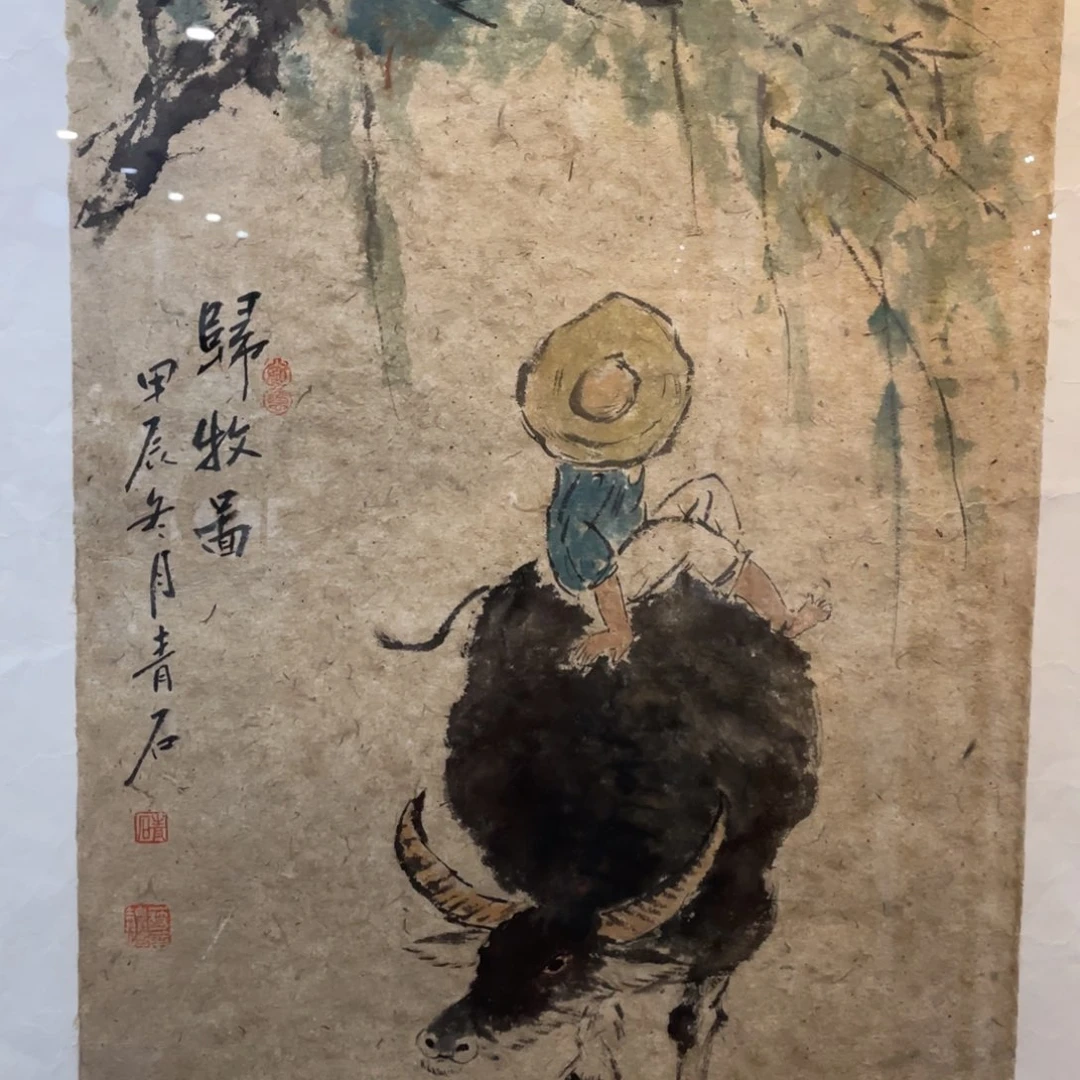 歸牧圖
甲辰冬月青石